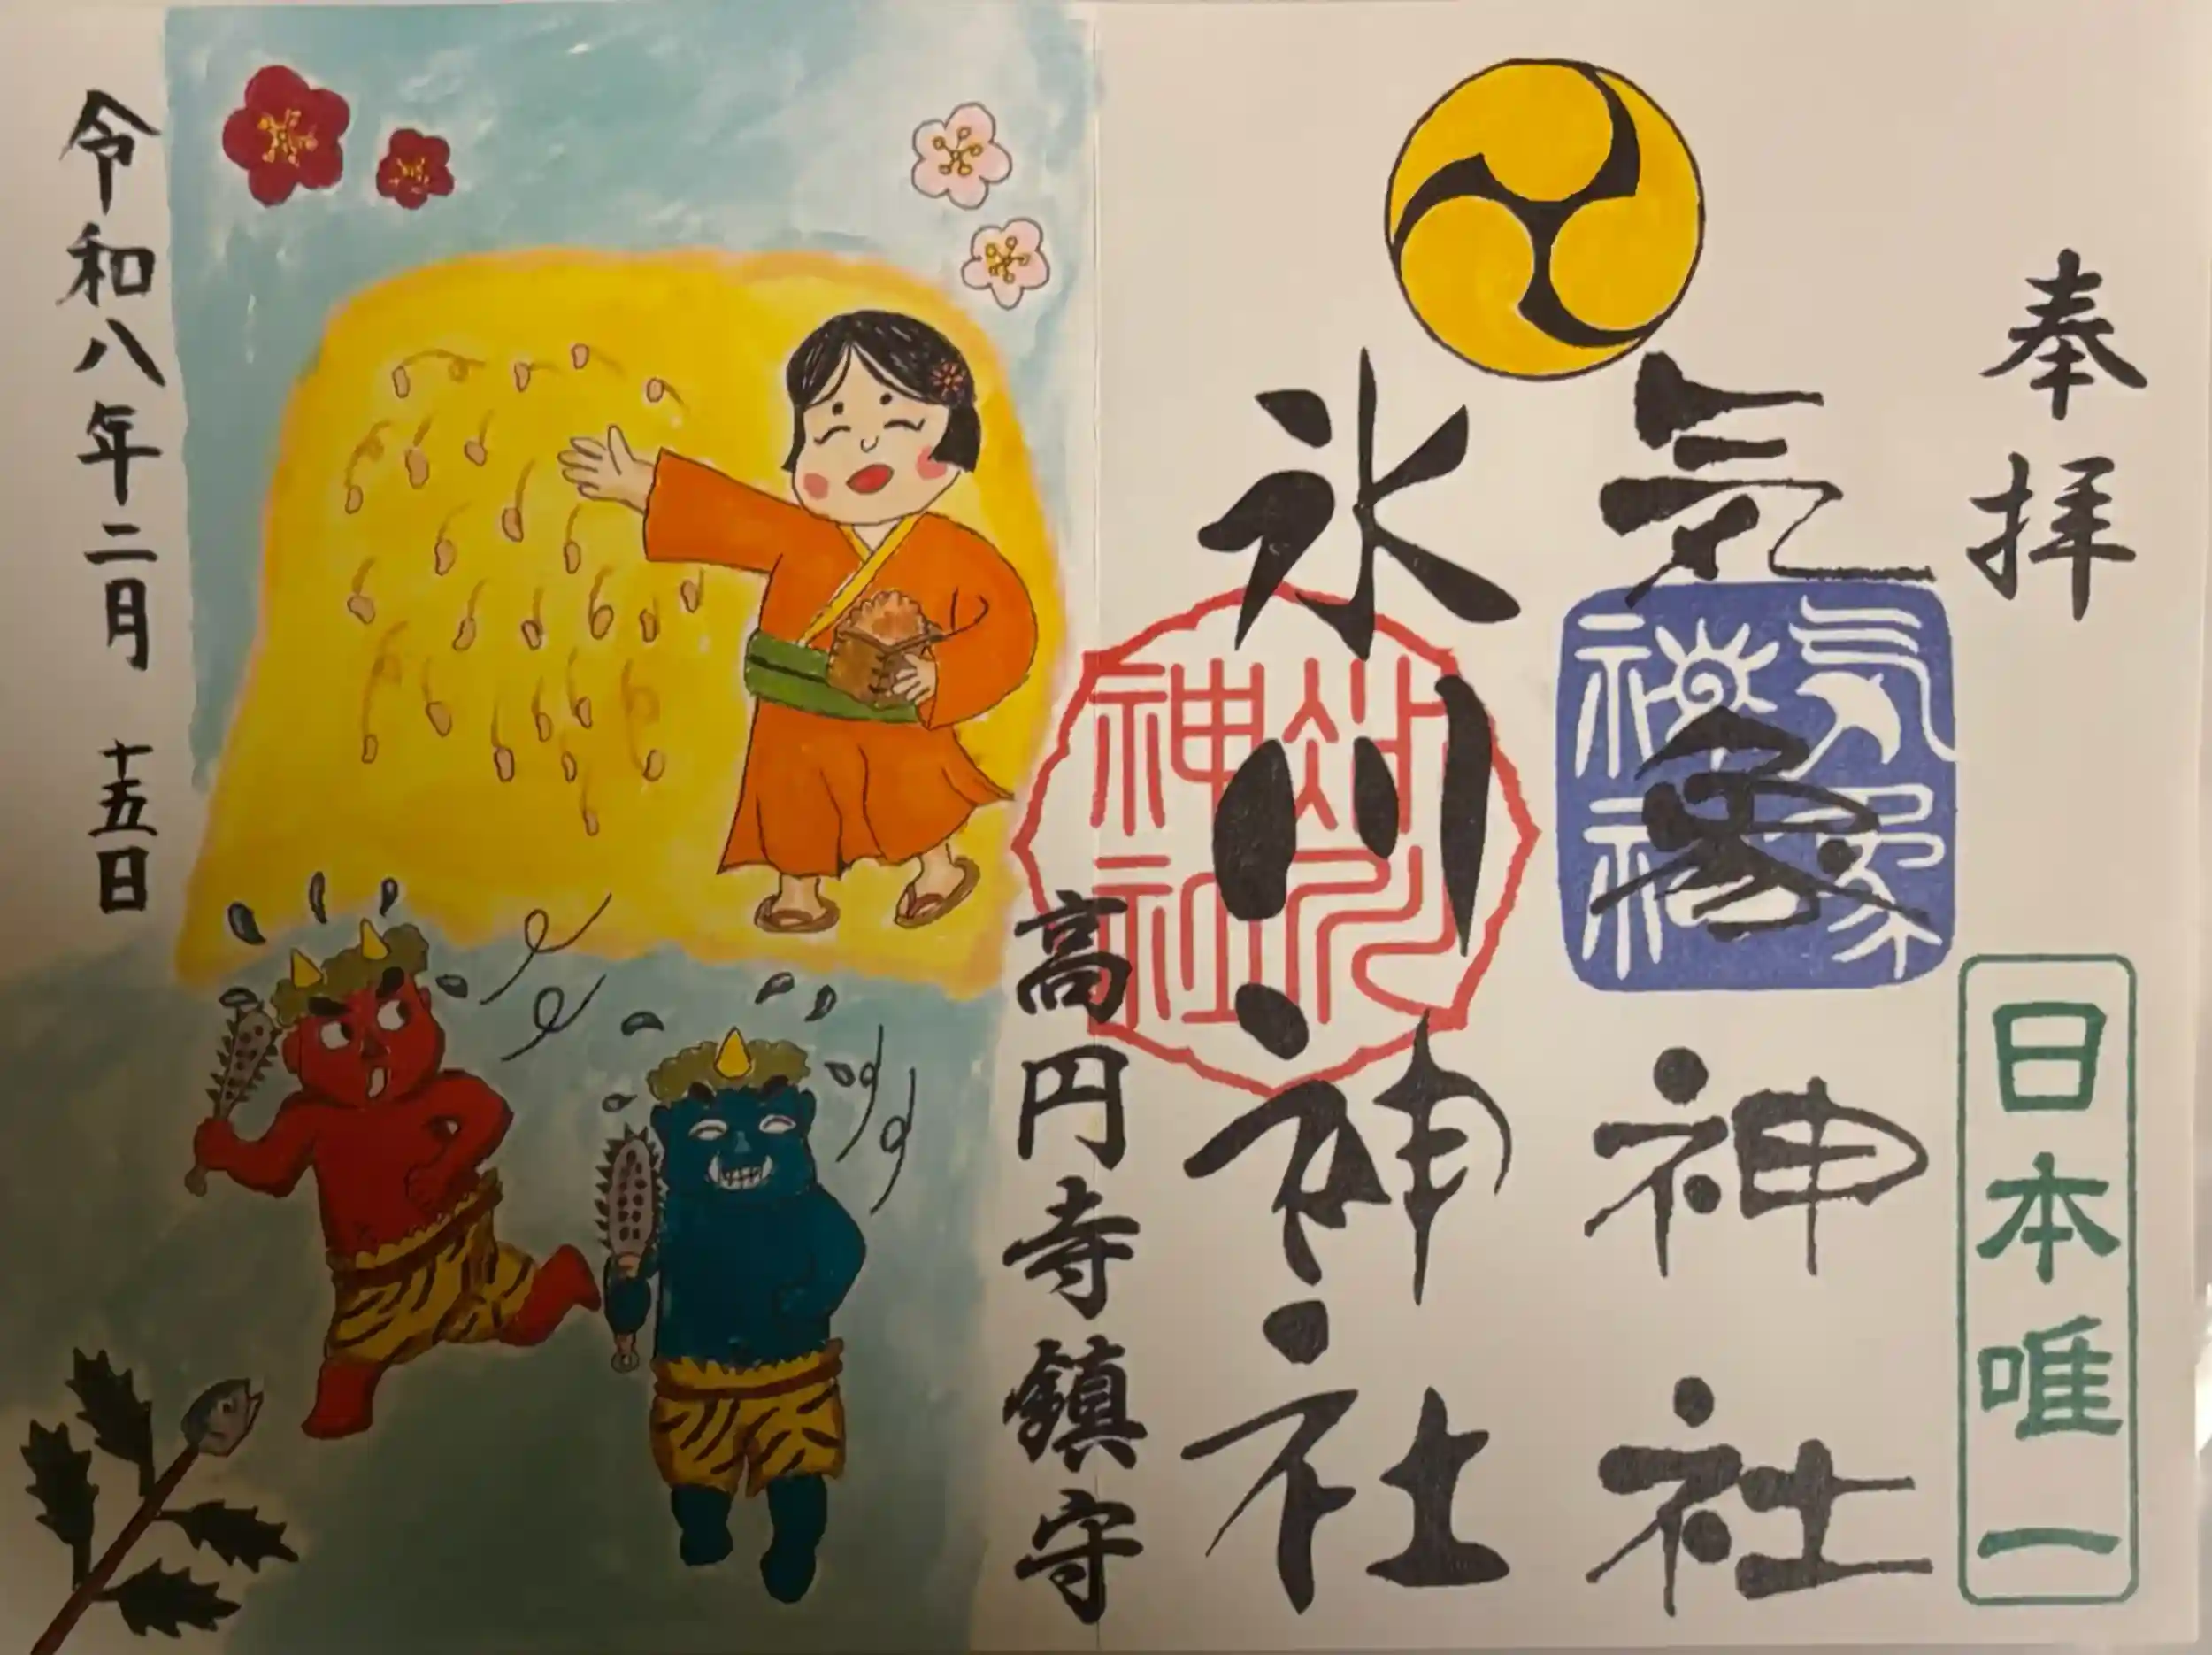 奉拝
日本唯一
気象神社
気象神社
氷川神社
氷川神社
高円寺鎮守
令和八年二月十五日